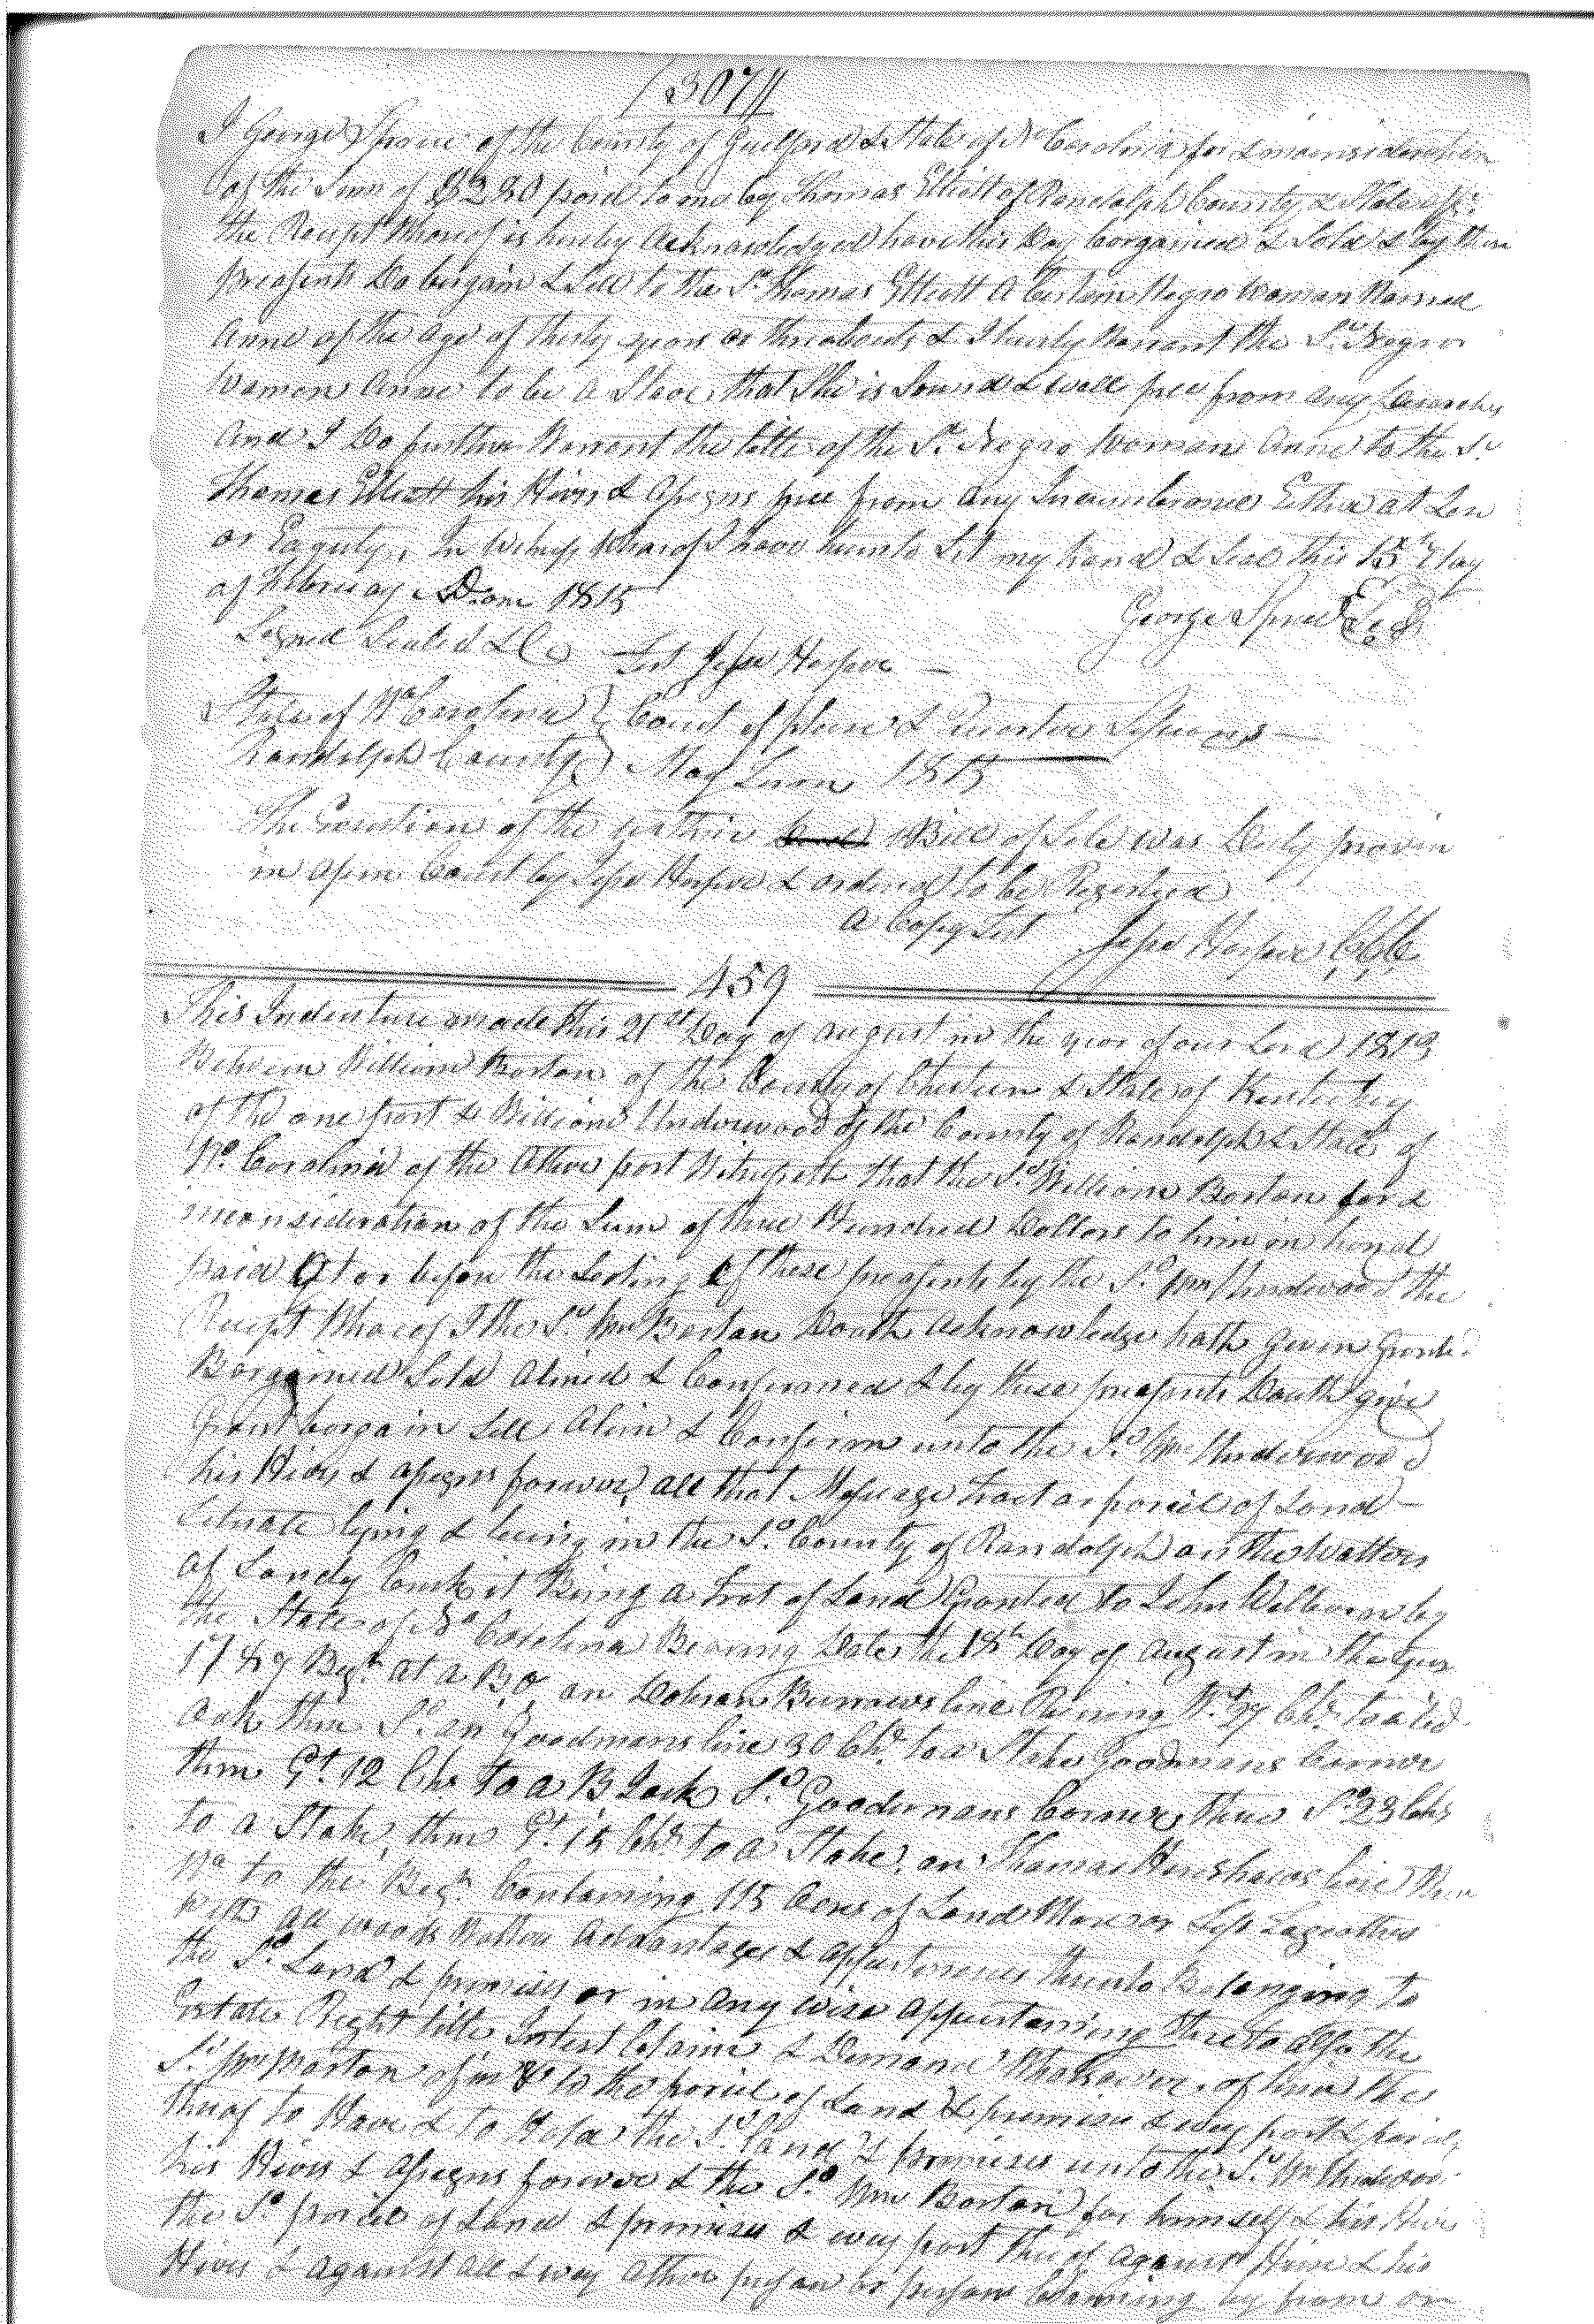 (307)
I George Spruce of the County of Guilford & State of No Carolina for & inconsideration
of the Sum of $320 paid to me by Thomas Elliott of Randolph County & State afs.
the Receipt Whareof is hereby Acknowledged have this Day bargained & Sold & by these
presents Do bargain & Sell to the Sd. Thomas Elliott A Certain Negro Woman Named
Anne of the Age of thirty years or thereabouts & I hereby Warrant the Sd. Negro
Woman Anne to be a Slave, that She is Sound & well free from any
And I Do further Warrant the title of the Sd. Negro Woman Anne to the Sd.
Thomas Elliott his Heirs & Assegns free from any Incumberance Either at Law
or Equity, In Witness Whareof I have hereunto Set my hand & Seal this 15th Day
of February A Dom 1815
George Spruce Seal
Signed Sealed &C
Test Jesse Harper
State of No Carolina } Court of pleas & Quarter Sessions
Randolph County } May Term 1815
The Execution of the within Bill of Sale was Duly proven
in open Court by Jesse Harper & ordered to be Registered
A Copy Test Jesse Harper CCC
459
This Indenture made this 21st Day of August in the year of our Lord 1813
Between William Barton of the County of Christian & State of Kentuckey
of the one part & William Underwood of the County of Randolph & State of
No. Carolina of the Other part Witnesseth that the Sd. William Barton for &
inconsideration of the Sum of three Hundred Dollars to him in hand
paid At or before the Sealing of these presents by the Sd. Wm Underwood the
Receipt Whareof I the Sd. Wm Barton Douth Acknowledge hath Given Grant.
Bargained Sold Alined & Confirmed & by these presents Douth give
Grant bargain Sell Alien & Confirm unto the Sd Wm Underwood
his Heirs & Assegns forever, all that Messuage tract or parcel of Land
Situate lying & being in the Sd. County of Randolph on the Watters
of Sandy Creek it Being a tract of Land Granted to John Welborn by
the State of No Carolina Bearing Date the 18th Day of August in the year
1789 Beg. at a B.O. on Dobson Burrows line Runing W. 27 Chs. to a Red
oak then So. on Goodmans line 30 Chs. to a Stake Goodmans Corner
then Et. 12 Chs to a B Jack Sd. Goodmans Corner, then So. 23 Chs
to a Stake, then Et. 15 Chs to a Stake, on Thomas Henshaws line then
No to the Beg. Containing 115 Acres of Land More or Less Together
With all woods Watters Advantages & appurtenances thereunto Belonging to
the Sd. Land & premises or in any wise appurtaining thereto Also the
Estate Right title Intrest Claime & Demand Whatsoever, of him the
Sd. Wm Barton of in & to the parcel of Land & premises & every part & parcel
thereof to Have & to Hold the Sd. Land & premises unto the Sd. Wm Underwood
his Heirs & Assegns forever & the Sd. Wm Barton for himself & his Heirs
the Sd. parcel of Land & premises & every part thereof against Him & his
Heirs & against all & every Other person or persons Claiming by from or